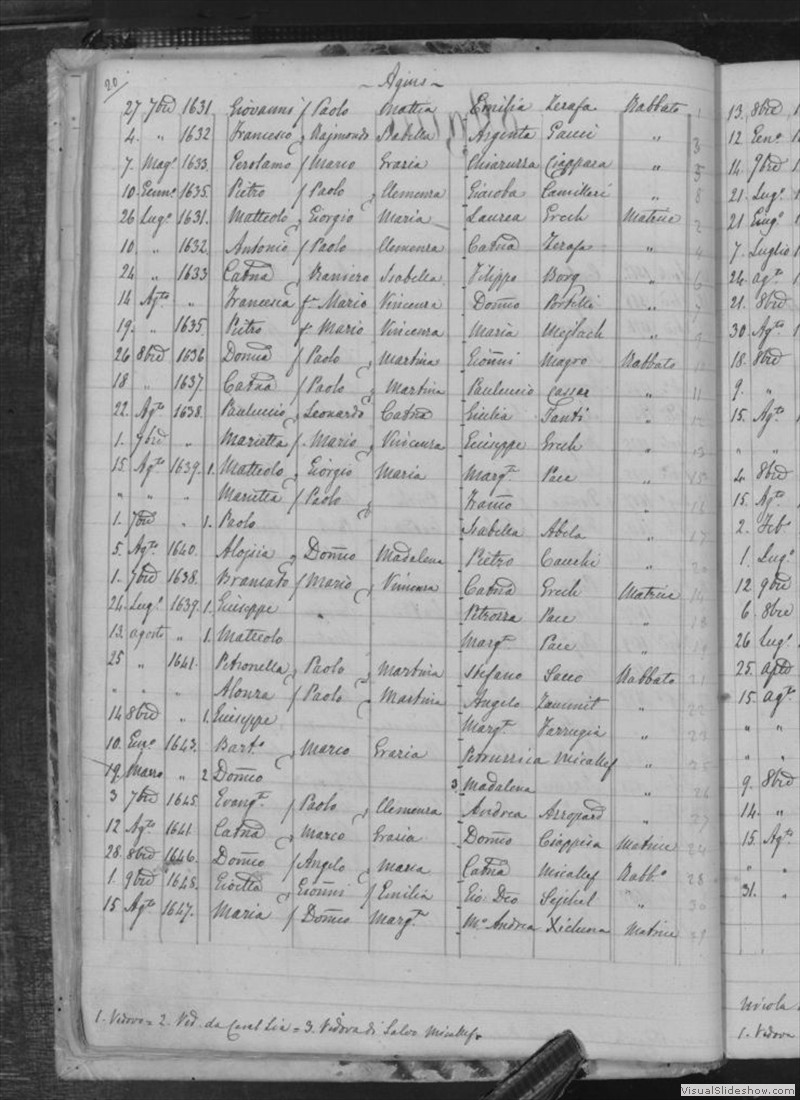 20
~ Agius ~
27 7bre 1631. Giovanni f Paolo Mattia Emilia Zerafa Rabbato 1
4. „ 1632 Francesco Raimondo Isabella Argenta Pacui „ 3
7. Mag.o 1633. Gerolamo f Marco Grazia Chiarurra Ciappara „ 5
10. 1635. Pietro f Paolo Clemenza Giacoba Camilleri „ 8
26 Lug.o 1631. Matteolo Giorgio Maria Laurea Grech Matrice 2
10 „ 1632. Antonio f Paolo Clemenza Catna Zerafa „ 4
24 „ 1633 Catna Raniero Isabella Filippo Borg „ 6
14 Ag.to „ Francesca f Mario Vincenza Domco „
19. „ 1635. Pietro f Mario Vincenza Maria Mejlach „
26 8bre 1636 Domca f Paolo Martina Gionni Magro Rabbato
18 „ 1637 Catna f Paolo Martina Pauluccio Cassar „ 11
22. Ag.to 1638. Pauluccio Leonardo Catna Giulia Tanti „ 12
1. 7bre „ Marietta f Mario Vincenza Giuseppe Grech „
15. Ag.to 1639. 1. Matteolo Giorgio Maria Marg.ta Pace „ 15
„ „ „ Marietta f Paolo „ 16
1. 7bre „ 1. Paolo Isabella Abela „ 17
5. Ag.to 1640. Aloisia Domco Madalena Pietro Cauchi „ 20
1. 7bre 1638. Brancato f Mario Vincenza Catna Grech Matrice 14
24. Lug.o 1639. 1. Giuseppe „ Petrozza Pace „ 18
13. agosto „ 1. Matteolo Marg.ta Pace „ 19
25 „ 1641. Petronella f Paolo Martina Stefano Sacco Rabbato 21
„ „ „ Alonza f Paolo Martina Angelo Zammit „ 22
14 8bre „ 1. Giuseppe Marg.ta Farrugia „ 23
10. 1643. Bart.o Marco Grazia Micallef „ 25
19. Marzo „ 2 Domco 3. Madalena „ 26
3 7bre 1645 Evang.ta f Paolo Clemenza Andrea Arropard „ 27
12 Ag.to 1641. Catna Marco Grazia Domco Ciappisa Matrice 24
28. 8bre 1646. Domco f Angelo Maria Catna Micallef Rabb.o 28
1. 9bre 1648. Gionni f Emilia Gio Deo „ 30
15 Ag.to 1647. Maria f Domco Marg.ta M.o Andrea Xicluna Matrice 29
1. Vedovo = 2. Ved. da = 3. Vedova di Salvo Micallef
13. 8bre 1
12 1
14. 9bre 1
21. Lug.o 1
21 1
7. Luglio 1
24. ag.to
21. 8bre
30. Ag.to
18. 8bre
9. „
15. Ag.to
„ „
4. 8bre
15. Ag.to
2. Feb.o
1. Lug.o
12 9bre
6. 8bre
26 Lug.o
25.
15. ag.to
„ „
„ „
9. 8bre
14. „
15. Ag.to
„ „
31. „
Nicola
1. Vedova
VisualSlideshow.com